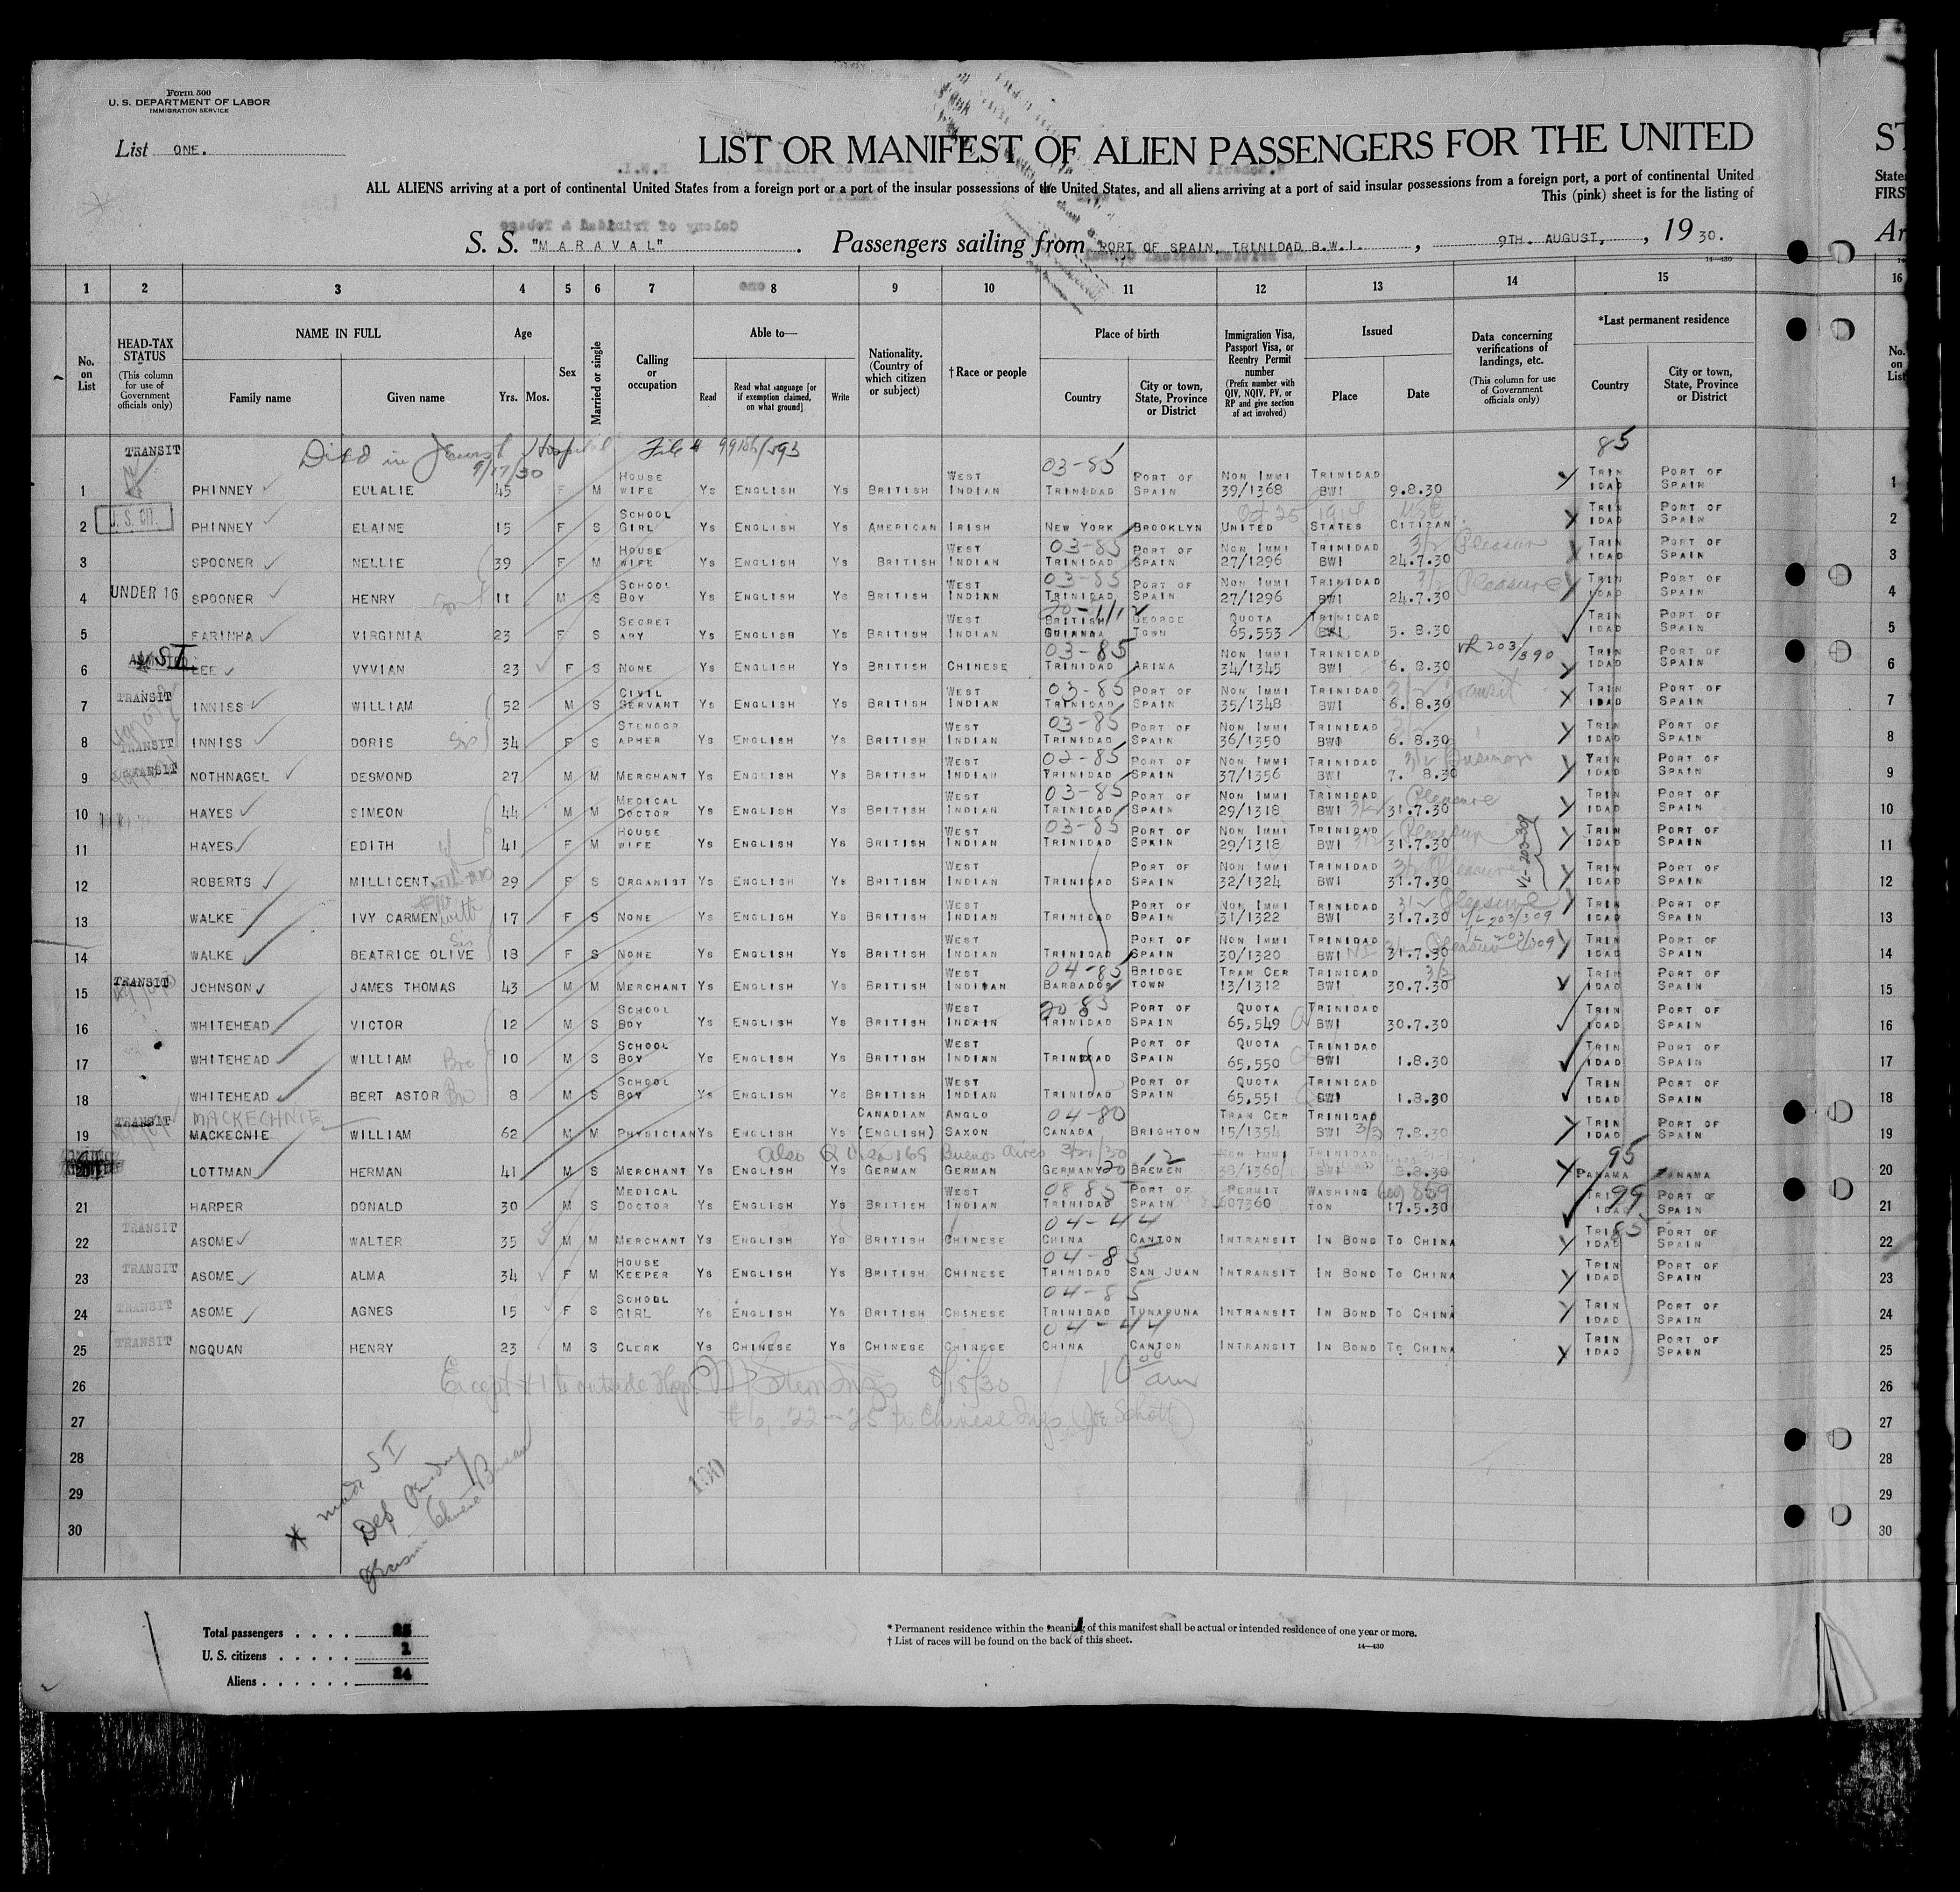 Form 500
U. S. DEPARTMENT OF LABOR
IMMIGRATION SERVICE
List ONE.
LIST OR MANIFEST OF ALIEN PASSENGERS FOR THE UNITED ST
ALL ALIENS arriving at a port of continental United States from a foreign port or a port of the insular possessions of the United States, and all aliens arriving at a port of said insular possessions from a foreign port, a port of continental United State
This (pink) sheet is for the listing of FIRS
S. S. "MARAVAL" . Passengers sailing from PORT OF SPAIN, TRINIDAD B.W.I. , 9TH. AUGUST, , 19 30. Ar
14-430
1 2 3 4 5 6 7 8 9 10 11 12 13 14 15 16
No. on List
HEAD-TAX STATUS (This column for use of Government officials only)
NAME IN FULL Family name Given name
Age Yrs. Mos.
Sex
Married or single
Calling or occupation
Able to— Read Read what language [or if exemption claimed, on what ground] Write
Nationality. (Country of which citizen or subject)
†Race or people
Place of birth Country City or town, State, Province or District
Immigration Visa, Passport Visa, or Reentry Permit number (Prefix number with QIV, NQIV, PV, or RP and give section of act involved)
Issued Place Date
Data concerning verifications of landings, etc. (This column for use of Government officials only)
*Last permanent residence Country City or town, State, Province or District
No. on List
TRANSIT Died in Jewish Hospital 9/17/30 File # 85
1 PHINNEY EULALIE 45 F M HOUSE WIFE Ys ENGLISH Ys BRITISH WEST INDIAN 03-85 TRINIDAD PORT OF SPAIN NON IMMI 39/1368 TRINIDAD BWI 9.8.30 TRINIDAD PORT OF SPAIN 1
2 U. S. CIT. PHINNEY ELAINE 15 F S SCHOOL GIRL Ys ENGLISH Ys AMERICAN IRISH NEW YORK BROOKLYN UNITED STATES CITIZAN. Oct 25 1914 USC TRINIDAD PORT OF SPAIN 2
3 SPOONER NELLIE 39 F M HOUSE WIFE Ys ENGLISH Ys BRITISH WEST INDIAN 03-85 TRINIDAD PORT OF SPAIN NON IMMI 27/1296 TRINIDAD BWI 24.7.30 3/2 Pleasure TRINIDAD PORT OF SPAIN 3
4 UNDER 16 SPOONER HENRY 11 M S SCHOOL BOY Ys ENGLISH Ys BRITISH WEST INDIAN 03-85 TRINIDAD PORT OF SPAIN NON IMMI 27/1296 TRINIDAD BWI 24.7.30 3/2 Pleasure TRINIDAD PORT OF SPAIN 4
5 FARINHA VIRGINIA 23 F S SECRET ARY Ys ENGLISH Ys BRITISH WEST INDIAN BRITISH GUIANNA GEORGE TOWN QUOTA 65,553 TRINIDAD BWI 5. 8.30 TRINIDAD PORT OF SPAIN 5
6 LEE VYVIAN 23 F S NONE Ys ENGLISH Ys BRITISH CHINESE 03-85 TRINIDAD ARIMA NON IMMI 34/1345 TRINIDAD BWI 6. 8.30 TRINIDAD PORT OF SPAIN 6
7 TRANSIT INNISS WILLIAM 52 M S CIVIL SERVANT Ys ENGLISH Ys BRITISH WEST INDIAN 03-85 TRINIDAD PORT OF SPAIN NON IMMI 35/1348 TRINIDAD BWI 6. 8.30 3/2 Transit TRINIDAD PORT OF SPAIN 7
8 TRANSIT INNISS DORIS Sis 34 F S STENOGR APHER Ys ENGLISH Ys BRITISH WEST INDIAN 03-85 TRINIDAD PORT OF SPAIN NON IMMI 36/1350 TRINIDAD BWI 6. 8.30 TRINIDAD PORT OF SPAIN 8
9 TRANSIT NOTHNAGEL DESMOND 27 M M MERCHANT Ys ENGLISH Ys BRITISH WEST INDIAN 02-85 TRINIDAD PORT OF SPAIN NON IMMI 37/1356 TRINIDAD BWI 7. 8.30 3/2 Business TRINIDAD PORT OF SPAIN 9
10 HAYES SIMEON 44 M M MEDICAL DOCTOR Ys ENGLISH Ys BRITISH WEST INDIAN 03-85 TRINIDAD PORT OF SPAIN NON IMMI 29/1318 TRINIDAD BWI 3/2 31.7.30 Pleasure TRINIDAD PORT OF SPAIN 10
11 HAYES EDITH 41 F M HOUSE WIFE Ys ENGLISH Ys BRITISH WEST INDIAN 03-85 TRINIDAD PORT OF SPAIN NON IMMI 29/1318 TRINIDAD BWI 3/2 31.7.30 Pleasure TRINIDAD PORT OF SPAIN 11
12 ROBERTS MILLICENT 29 F S ORGANIST Ys ENGLISH Ys BRITISH WEST INDIAN TRINIDAD PORT OF SPAIN NON IMMI 32/1324 TRINIDAD BWI 31.7.30 3/2 Pleasure TRINIDAD PORT OF SPAIN 12
13 WALKE IVY CARMEN 17 F S NONE Ys ENGLISH Ys BRITISH WEST INDIAN TRINIDAD PORT OF SPAIN NON IMMI 31/1322 TRINIDAD BWI 31.7.30 3/2 Pleasure TRINIDAD PORT OF SPAIN 13
14 WALKE BEATRICE OLIVE Sis 18 F S NONE Ys ENGLISH Ys BRITISH WEST INDIAN TRINIDAD PORT OF SPAIN NON IMMI 30/1320 TRINIDAD BWI 31.7.30 Pleasure TRINIDAD PORT OF SPAIN 14
15 TRANSIT JOHNSON JAMES THOMAS 43 M M MERCHANT Ys ENGLISH Ys BRITISH WEST INDIAN 04-85 BARBADOS BRIDGE TOWN TRAN CER 13/1312 TRINIDAD 30.7.30 3/3 TRINIDAD PORT OF SPAIN 15
16 WHITEHEAD VICTOR 12 M S SCHOOL BOY Ys ENGLISH Ys BRITISH WEST INDAIN 20-85 TRINIDAD PORT OF SPAIN QUOTA 65,549 TRINIDAD BWI 30.7.30 TRINIDAD PORT OF SPAIN 16
17 WHITEHEAD WILLIAM Bro 10 M S SCHOOL BOY Ys ENGLISH Ys BRITISH WEST INDIAN TRINIDAD PORT OF SPAIN QUOTA 65,550 TRINIDAD BWI 1.8.30 TRINIDAD PORT OF SPAIN 17
18 WHITEHEAD BERT ASTOR Bro 8 M S SCHOOL BOY Ys ENGLISH Ys BRITISH WEST INDIAN TRINIDAD PORT OF SPAIN QUOTA 65,551 TRINIDAD BWI 1.8.30 TRINIDAD PORT OF SPAIN 18
19 TRANSIT MACKECHNIE MACKECNIE WILLIAM 62 M M PHYSICIAN Ys ENGLISH Ys CANADIAN (ENGLISH) ANGLO SAXON 04-80 CANADA BRIGHTON TRAN CER 15/1354 TRINIDAD BWI 3/3 7.8.30 TRINIDAD PORT OF SPAIN 19
also Q Visa 168 Buenos Aires 3/21/30
20 LOTTMAN HERMAN 41 M S MERCHANT Ys ENGLISH Ys GERMAN GERMAN GERMANY BREMEN NON IMMI 38/1360 TRINIDAD BWI 8.8.30 95 PANAMA PANAMA 20
21 HARPER DONALD 30 M S MEDICAL DOCTOR Ys ENGLISH Ys BRITISH WEST INDIAN 08 85 TRINIDAD PORT OF SPAIN PERMIT 607360 WASHING TON 17.5.30 99 TRINIDAD PORT OF SPAIN 21
22 TRANSIT ASOME WALTER 35 M M MERCHANT Ys ENGLISH Ys BRITISH CHINESE 04-44 CHINA CANTON INTRANSIT IN BOND TO CHINA 85 TRINIDAD PORT OF SPAIN 22
23 TRANSIT ASOME ALMA 34 F M HOUSE KEEPER Ys ENGLISH Ys BRITISH CHINESE 04-85 TRINIDAD SAN JUAN INTRANSIT IN BOND TO CHINA TRINIDAD PORT OF SPAIN 23
24 TRANSIT ASOME AGNES 15 F S SCHOOL GIRL Ys ENGLISH Ys BRITISH CHINESE 04-85 TRINIDAD TUNAPUNA INTRANSIT IN BOND TO CHINA TRINIDAD PORT OF SPAIN 24
25 TRANSIT NGQUAN HENRY 23 M S CLERK Ys CHINESE Ys CHINESE CHINESE 04-44 CHINA CANTON INTRANSIT IN BOND TO CHINA TRINIDAD PORT OF SPAIN 25
26 Except #1 to outside Hosp 8/18/30 10 am 26
27 #6, 22-25 to Chinese Insp. 27
28 28
29 29
30 30
* made SI
Total passengers . . . . 25
U. S. citizens . . . . . 1
Aliens . . . . . . 24
* Permanent residence within the meaning of this manifest shall be actual or intended residence of one year or more.
† List of races will be found on the back of this sheet. 14-430